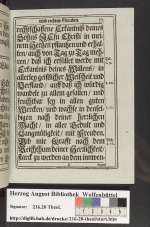 und rechten Freuden.
rechtschaffene Erkäntniß deines
Sohns JEsu Christi in mei-
nem Hertzen pflantzen und erhal-
ten, auch von Tag zu Tag meh-
ren, daß ich erfüllet werde mit
Erkäntniß deines Willens, in
allerley geistlicher Weißheit und
Verstand, auf daß ich würdig
wandele zu allem gefallen, und
fruchtbar sey in allen guten
Wercken, und wachse in
deiner herrlichen
Macht, in aller Gedult und
Langmüthigkeit, mit Freuden.
Gib mir Krafft nach dem
Reichthum deiner Herrlichkeit,
starck zu werden an dem innwen-
Herzog August Bibliothek Wolfenbüttel
Signatur: 216.20 Theol.
http://diglib.hab.de/drucke/216-20-theol/start.htm